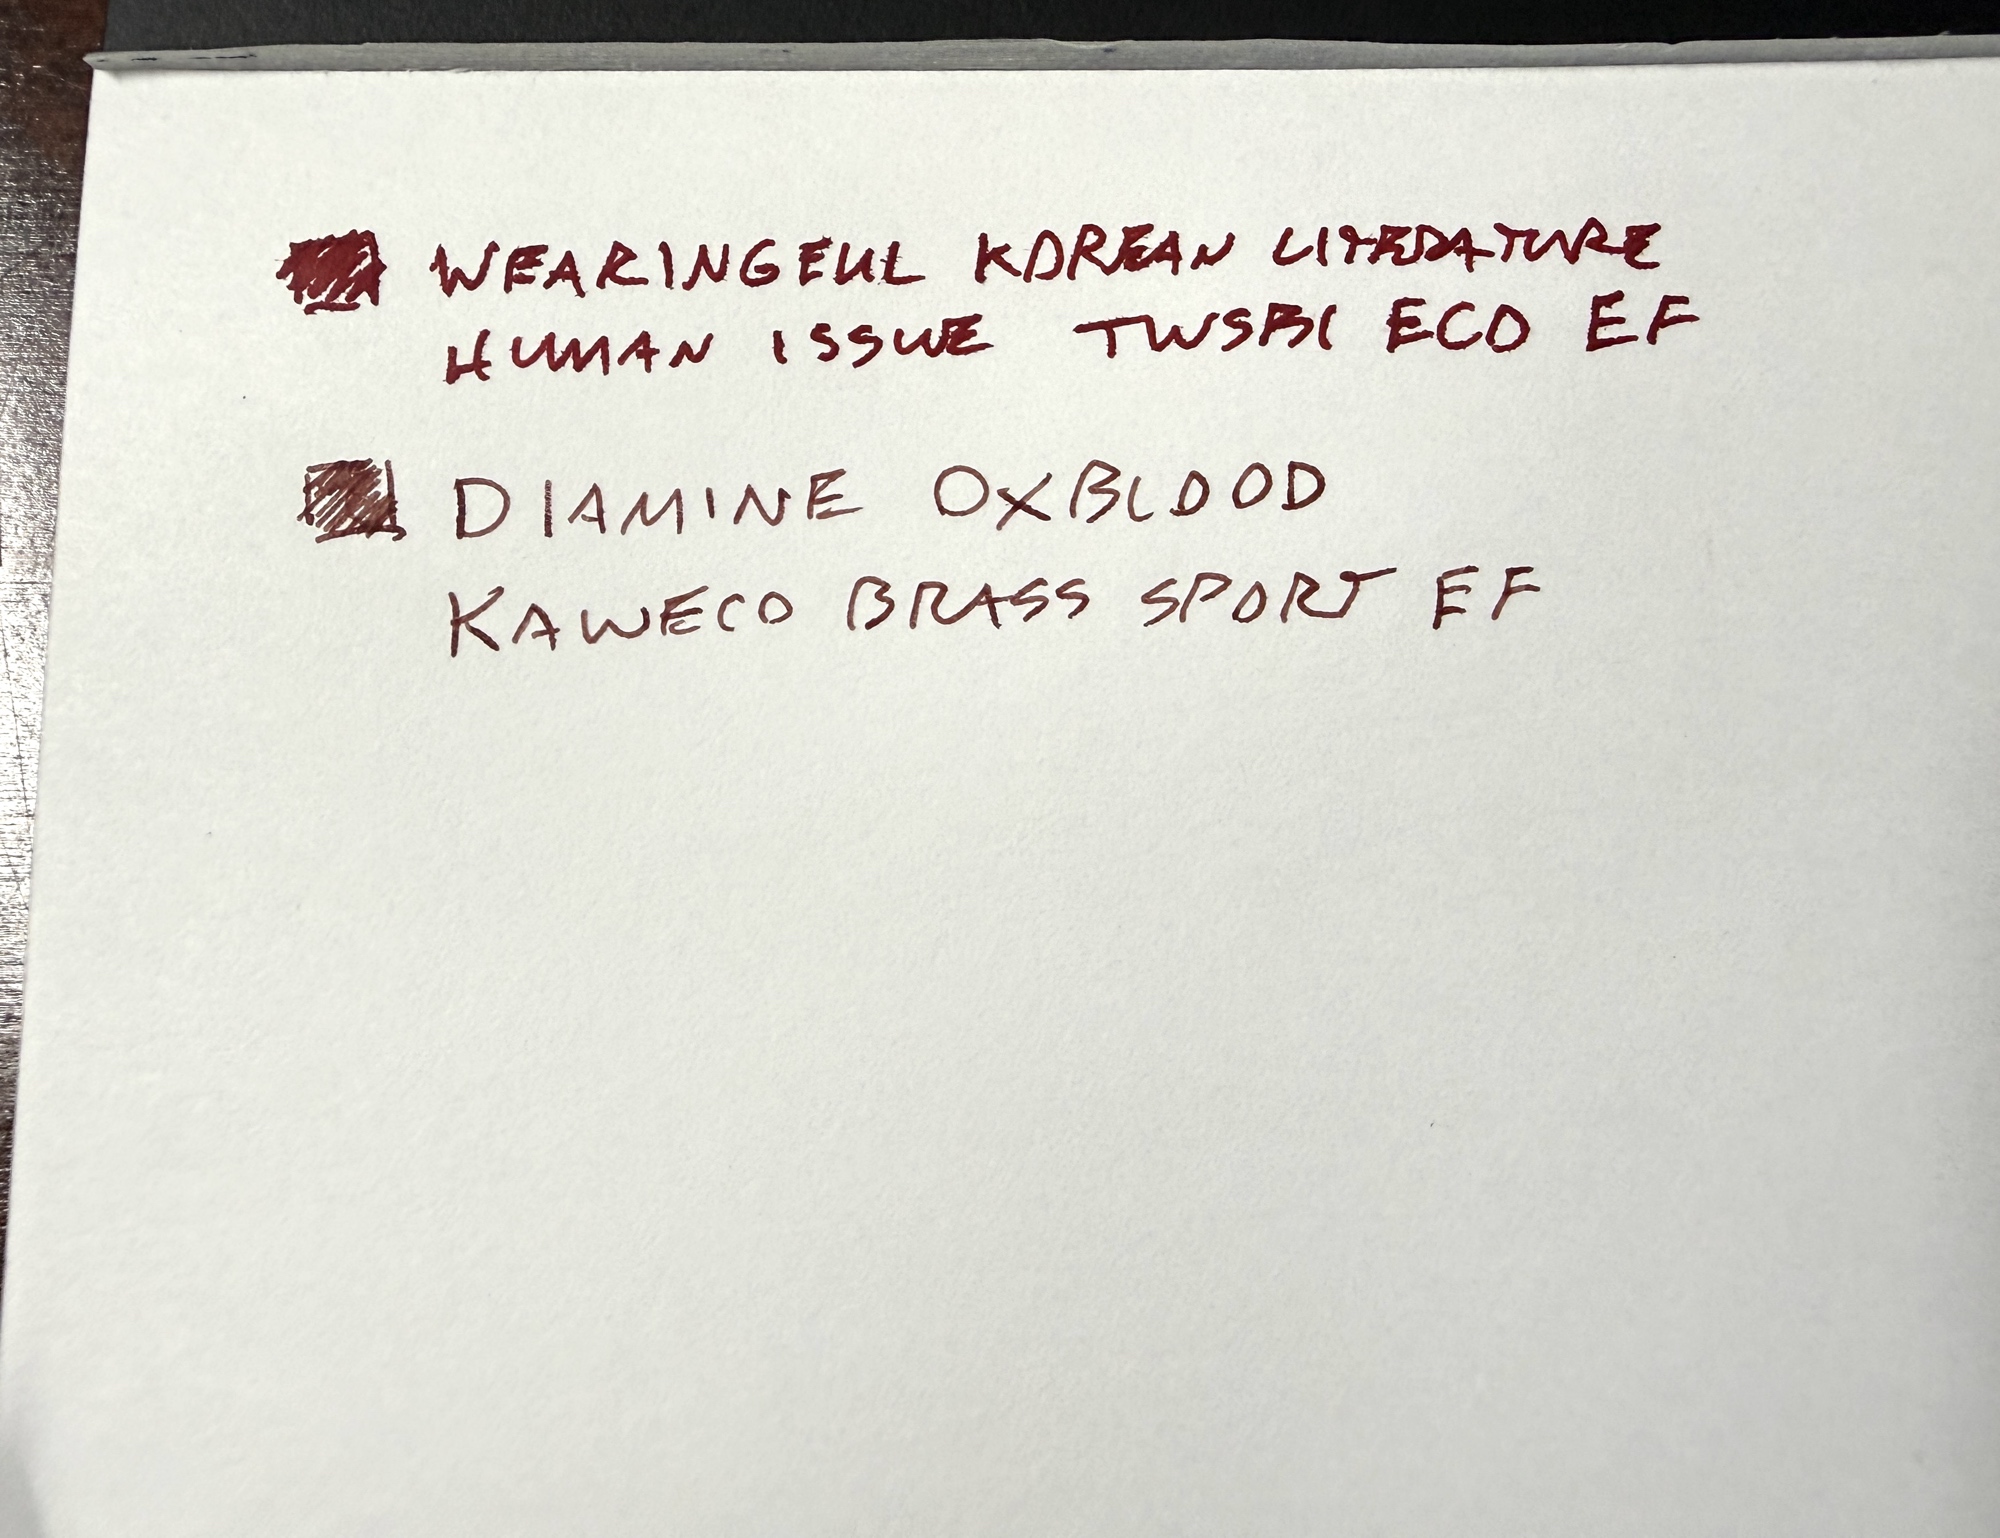 WEARINGEUL KOREAN LITERATURE
HUMAN ISSUE TWSBI ECO EF
DIAMINE OXBLOOD
KAWECO BRASS SPORT EF